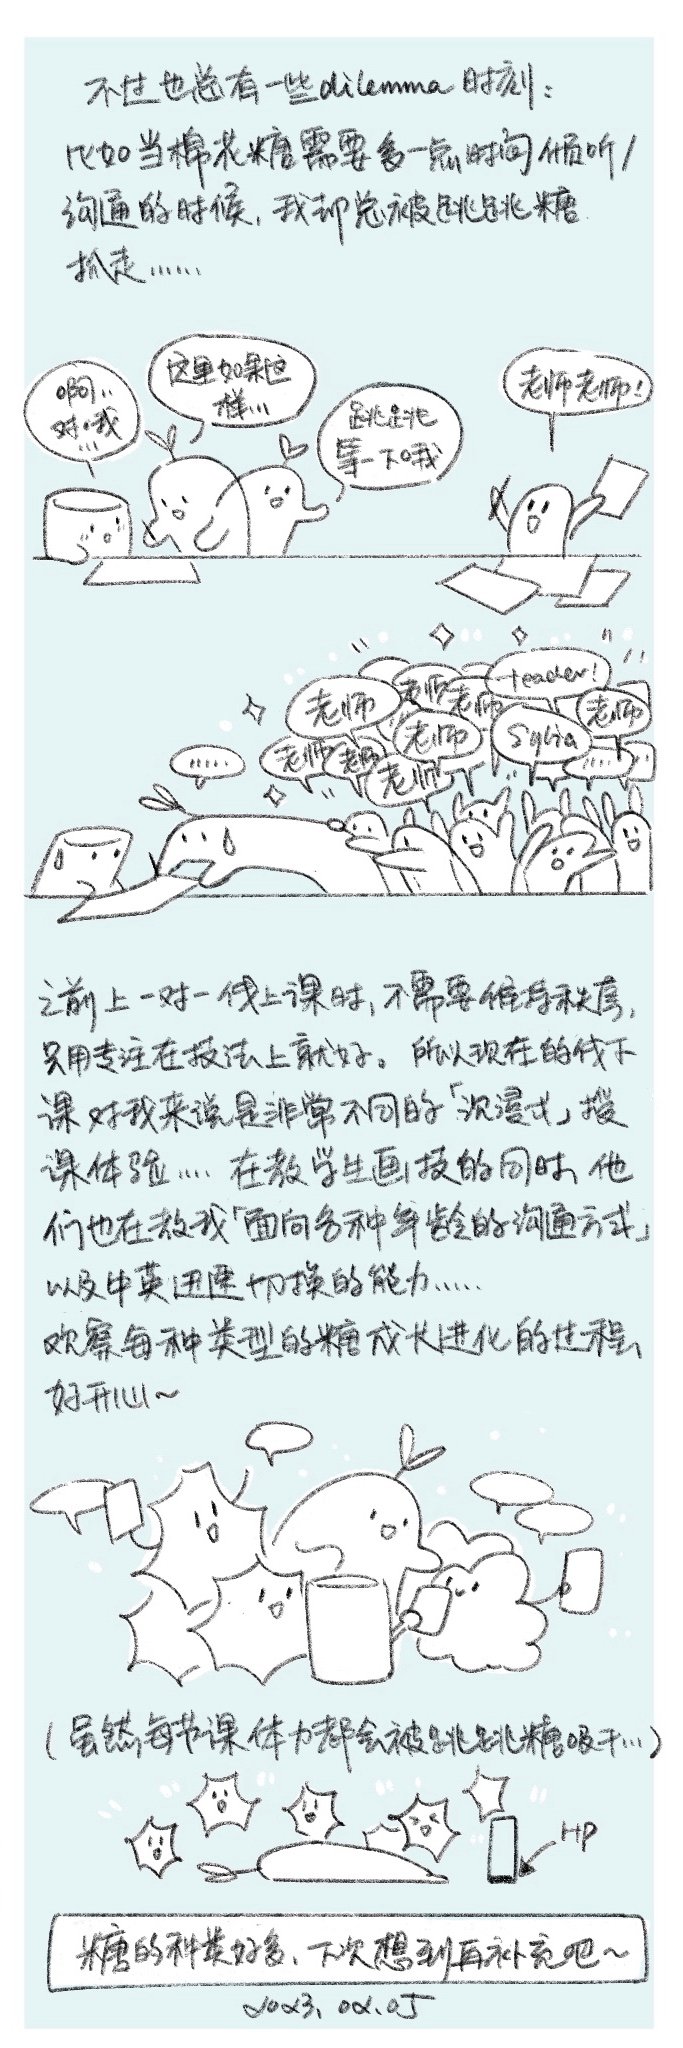 不过也总有一些dilemma时刻：
比如当棉花糖需要多一点时间倾听/
沟通的时候，我却总被跳跳糖
抓走……
啊..
对..哦
...
这里如果这
样...
跳跳
等一下哦
老师老师！
老师
老师
老师
teacher!
老师
老师
老师
老师
Sylia
老师
……
……
之前上一对一线上课时，不需要维持秩序，
只用专注在技法上就好。所以现在的线下
课对我来说是非常不同的「沉浸式」授
课体验…. 在教学生画技的同时，他
们也在教我「面向各种年龄的沟通方式」
以及中英迅速切换的能力……
观察每种类型的糖成长进化的过程，
好开心～
（虽然每节课体力都会被跳跳糖吸干…）
HP
糖的种类好多，下次想到再补充吧～
2023.02.05